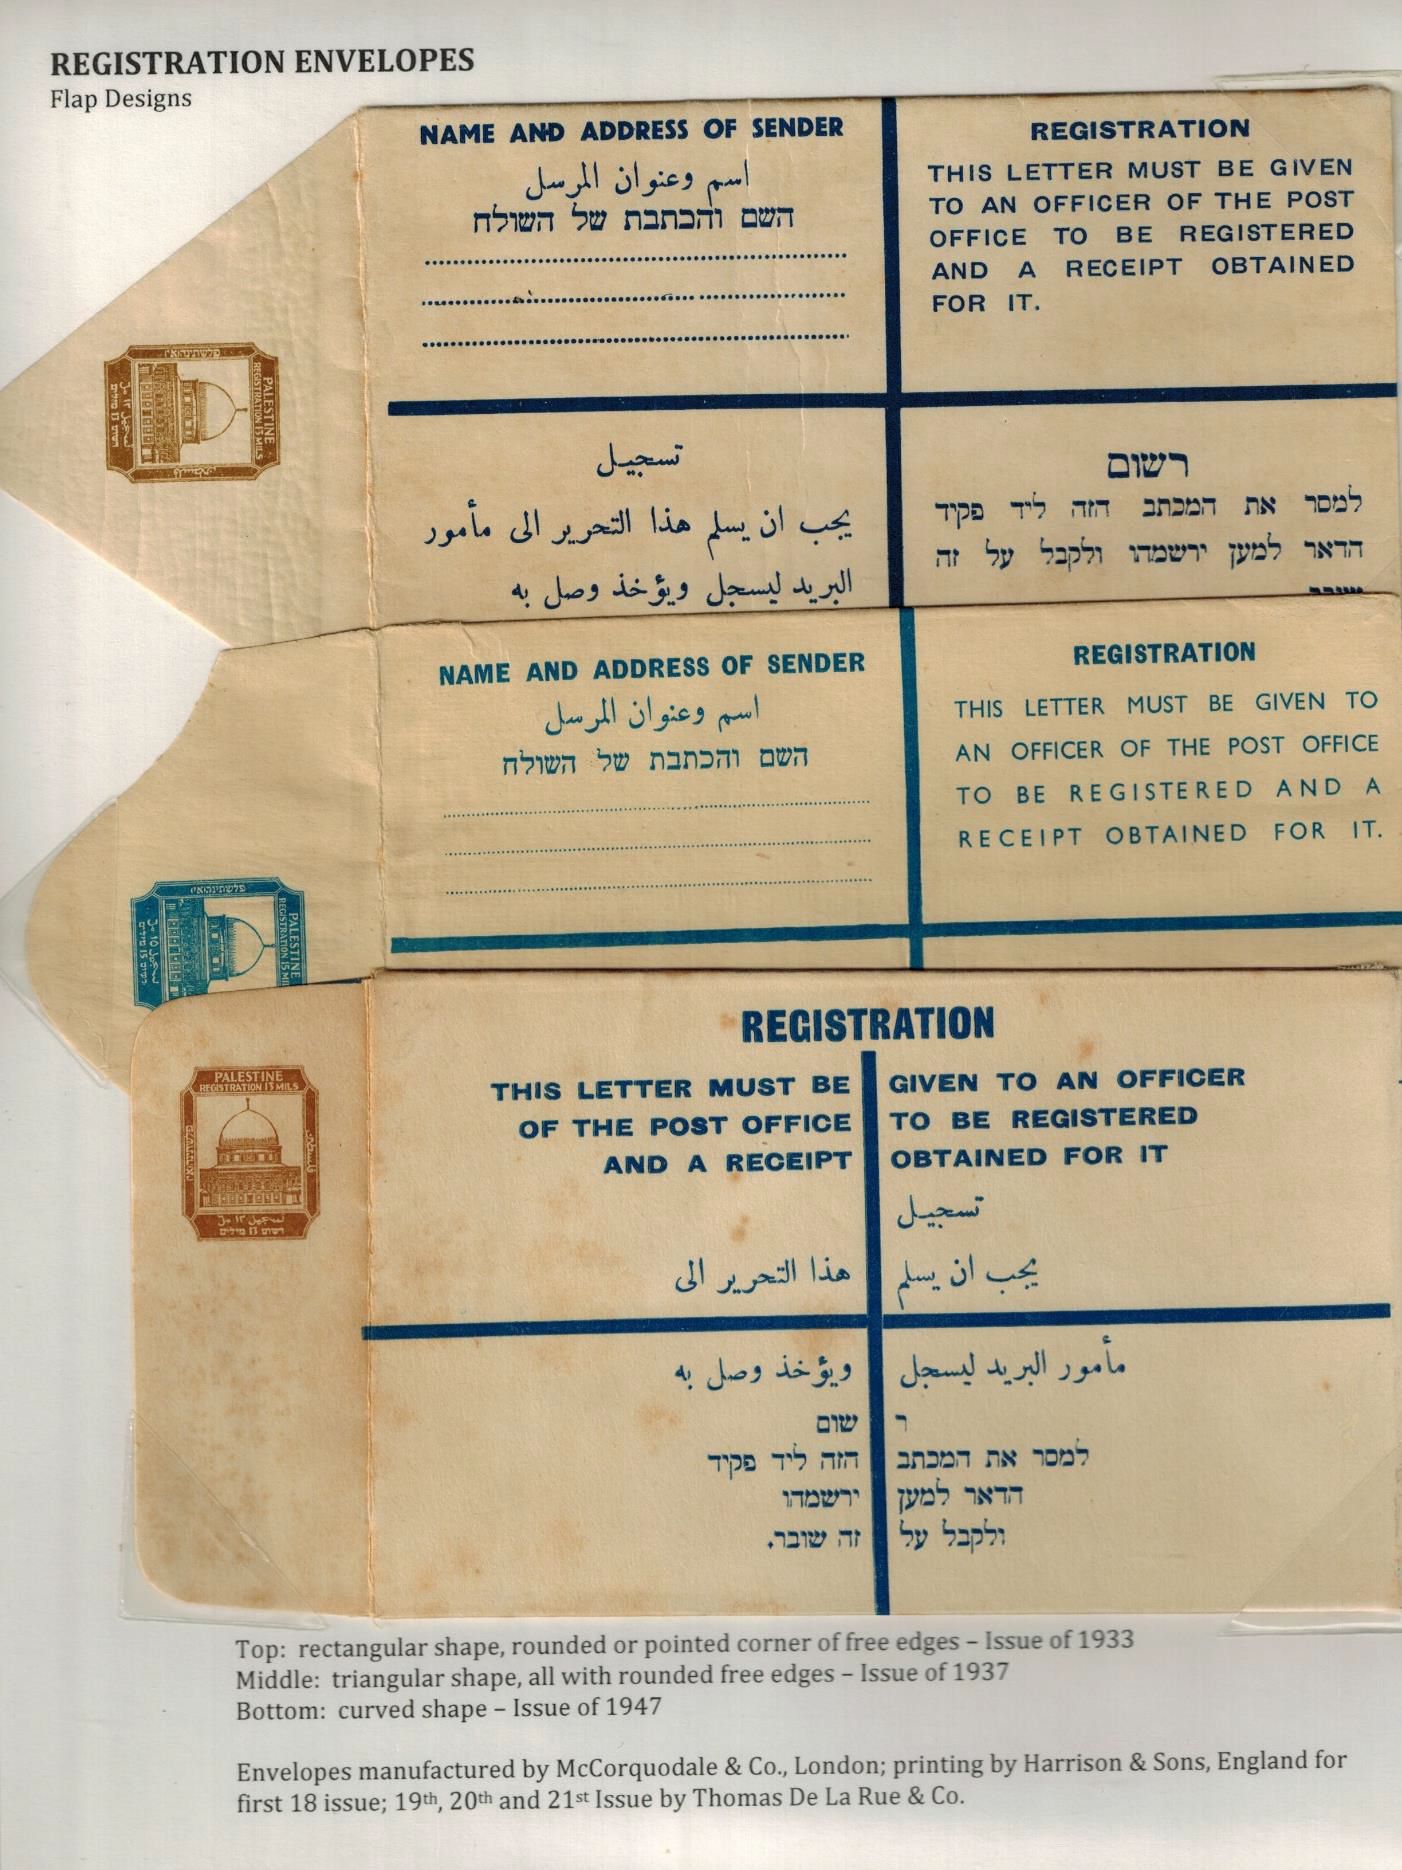 REGISTRATION ENVELOPES
Flap Designs
NAME AND ADDRESS OF SENDER
اسم وعنوان المرسل
השם והכתבת של השולח
REGISTRATION
THIS LETTER MUST BE GIVEN
TO AN OFFICER OF THE POST
OFFICE TO BE REGISTERED
AND A RECEIPT OBTAINED
FOR IT.
PALESTINE
REGISTRATION 13 MILS
تسجيل
يجب ان يسلم هذا التحرير الى مأمور
البريد ليسجل ويؤخذ وصل به
רשום
למסר את המכתב הזה ליד פקיד
הדאר למען ירשמהו ולקבל על זה
NAME AND ADDRESS OF SENDER
اسم وعنوان المرسل
השם והכתבת של השולח
REGISTRATION
THIS LETTER MUST BE GIVEN TO
AN OFFICER OF THE POST OFFICE
TO BE REGISTERED AND A
RECEIPT OBTAINED FOR IT.
PALESTINE
REGISTRATION 15 MILS
REGISTRATION
THIS LETTER MUST BE GIVEN TO AN OFFICER
OF THE POST OFFICE TO BE REGISTERED
AND A RECEIPT OBTAINED FOR IT
تسجيل
يجب ان يسلم هذا التحرير الى
مأمور البريد ليسجل ويؤخذ وصل به
ר שום
למסר את המכתב הזה ליד פקיד
הדאר למען ירשמהו
ולקבל על זה שובר.
PALESTINE
REGISTRATION 13 MILS
פלשתינה א״י
فلسطين
تسجيل ١٣ مل
רשום 13 מילים
Top: rectangular shape, rounded or pointed corner of free edges – Issue of 1933
Middle: triangular shape, all with rounded free edges – Issue of 1937
Bottom: curved shape – Issue of 1947
Envelopes manufactured by McCorquodale & Co., London; printing by Harrison & Sons, England for
first 18 issue; 19th, 20th and 21st Issue by Thomas De La Rue & Co.